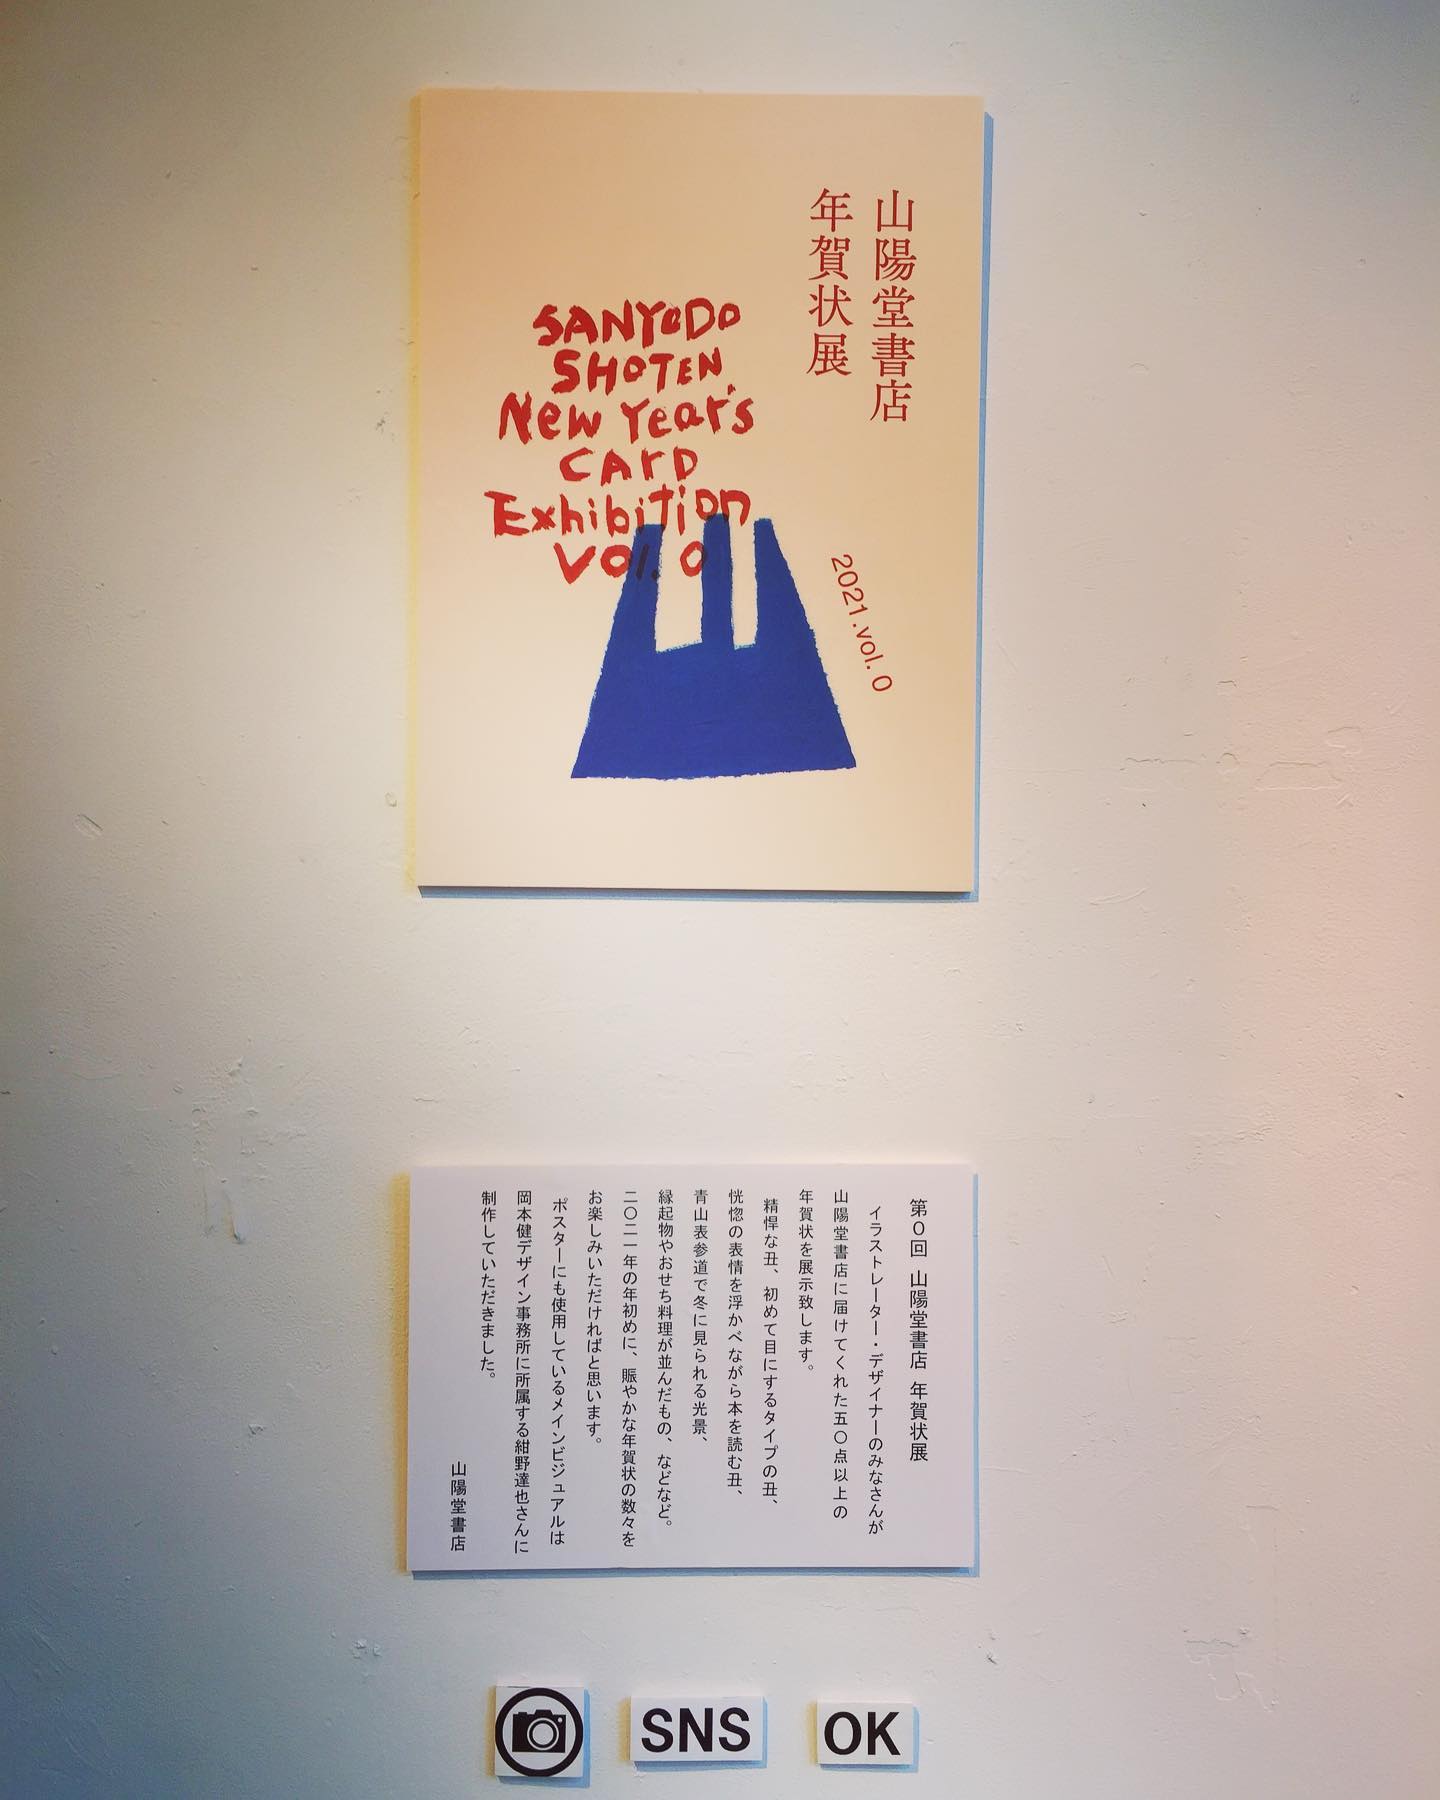 山陽堂書店
年賀状展
SANYODO
SHOTEN
New Year's
CArD
Exhibition
Vol. 0
2021.vol.0
第0回 山陽堂書店 年賀状展
イラストレーター・デザイナーのみなさんが
山陽堂書店に届けてくれた五〇点以上の
年賀状を展示致します。
精悍な丑、初めて目にするタイプの丑、
恍惚の表情を浮かべながら本を読む丑、
青山表参道で冬に見られる光景、
縁起物やおせち料理が並んだもの、などなど。
二〇二一年の年初めに、賑やかな年賀状の数々を
お楽しみいただければと思います。
ポスターにも使用しているメインビジュアルは
岡本健デザイン事務所に所属する紺野達也さんに
制作していただきました。
山陽堂書店
SNS
OK